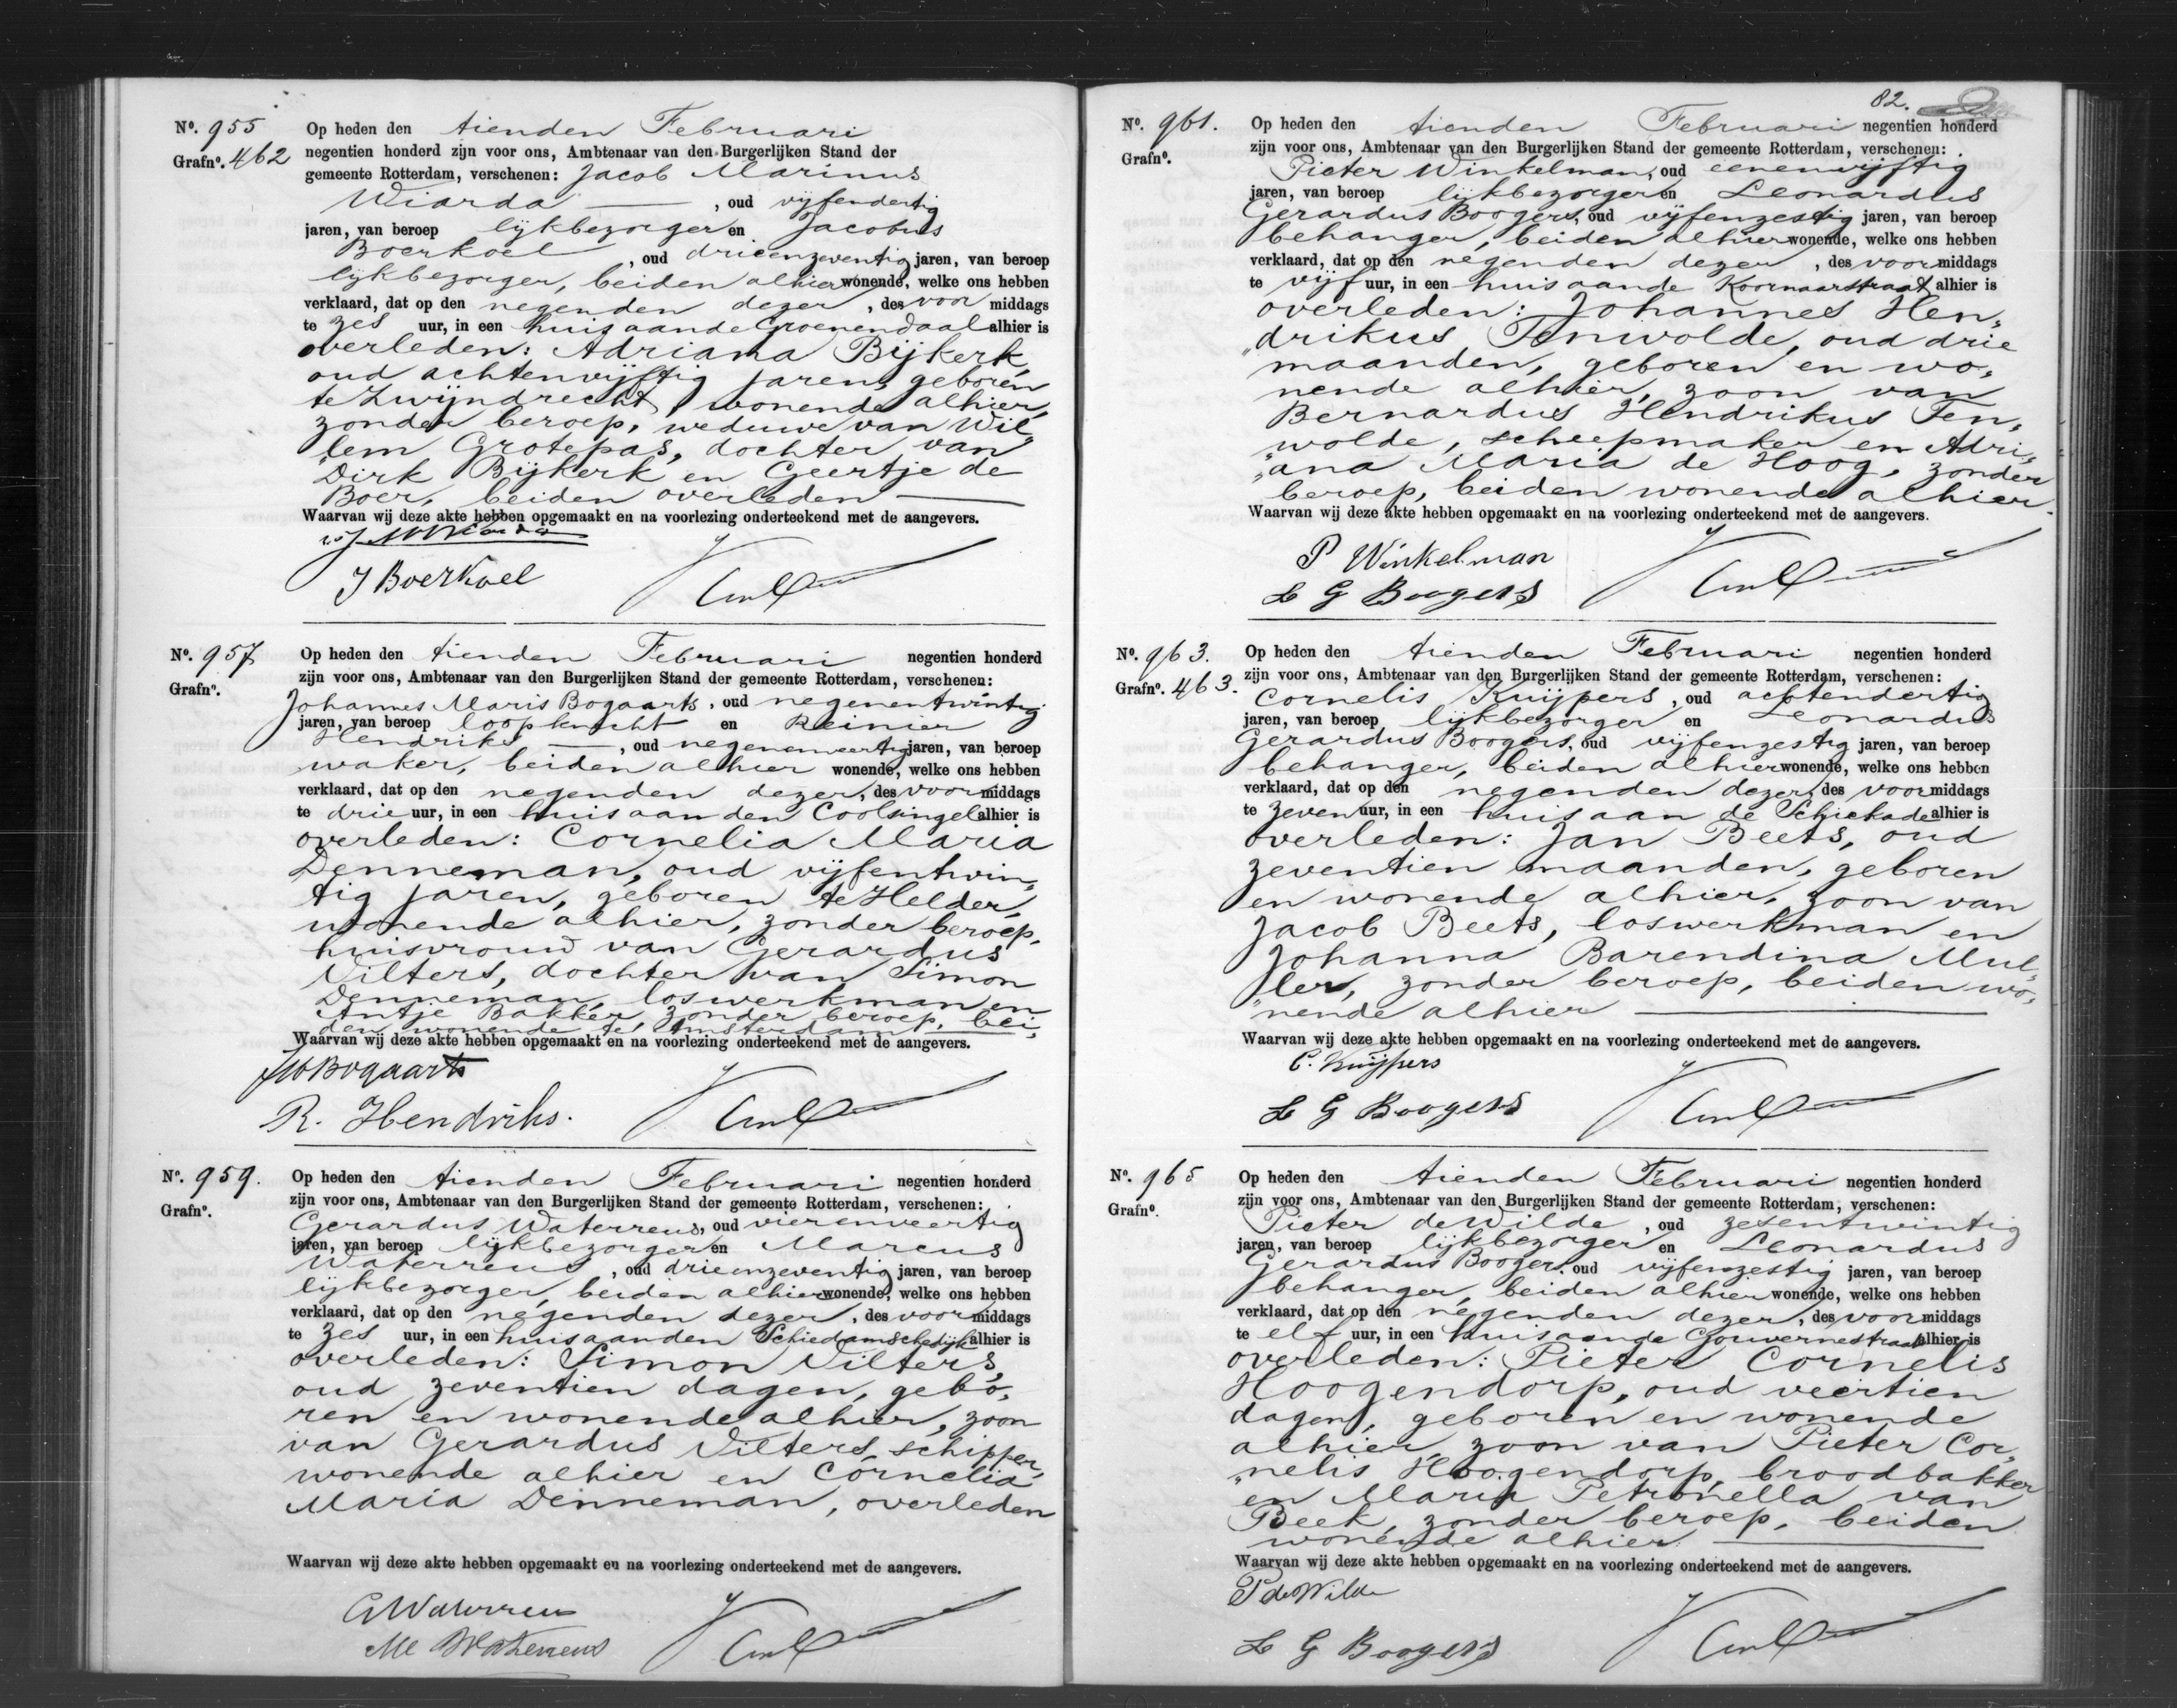 Nº. 955
Grafnº. 462
Op heden den tienden Februari
negentien honderd zijn voor ons, Ambtenaar van den Burgerlijken Stand der
gemeente Rotterdam, verschenen: Jacob Marinus
Wiarda , oud vijfendertig
jaren, van beroep lijkbezorger en Jacobus
Boerkoel , oud drieenzeventig jaren, van beroep
lijkbezorger, beiden alhier wonende, welke ons hebben
verklaard, dat op den negenden dezer , des voor middags
te zes uur, in een huis aan de Groenendaal alhier is
overleden: Adriana Bijkerk,
oud achtenvijftig jaren, geboren
te Zwijndrecht, wonende alhier,
zonder beroep, weduwe van Wil„
„lem Grotepas, dochter van
Dirk Bijkerk en Geertje de
Boer, beiden overleden
Waarvan wij deze akte hebben opgemaakt en na voorlezing onderteekend met de aangevers.
J M Wiarda
J Boerkoel
Nº. 957
Grafnº.
Op heden den tienden Februari negentien honderd
zijn voor ons, Ambtenaar van den Burgerlijken Stand der gemeente Rotterdam, verschenen:
Johannes Maris Bogaarts, oud negenentwintig
jaren, van beroep loopknecht en Reinier
Hendriks , oud negenenveertig jaren, van beroep
waker, beiden alhier wonende, welke ons hebben
verklaard, dat op den negenden dezer, des voormiddags
te drie uur, in een huis aan den Coolsingel alhier is
overleden: Cornelia Maria
Denneman, oud vijfentwin„
tig jaren, geboren te Helder,
wonende alhier, zonder beroep,
huisvrouw van Gerardus
Vilters, dochter van Simon
Denneman, loswerkman en
Antje Bakker, zonder beroep, bei„
den wonende te Amsterdam
Waarvan wij deze akte hebben opgemaakt en na voorlezing onderteekend met de aangevers.
JM Bogaarts
R. Hendriks.
Nº. 959.
Grafnº.
Op heden den tienden Februari negentien honderd
zijn voor ons, Ambtenaar van den Burgerlijken Stand der gemeente Rotterdam, verschenen:
Gerardus Waterreus, oud vierenveertig
jaren, van beroep lijkbezorger en Marcus
Waterreus , oud drieenzeventig jaren, van beroep
lijkbezorger, beiden alhier wonende, welke ons hebben
verklaard, dat op den negenden dezer , des voormiddags
te zes uur, in een huis aan den Schiedamschedijk alhier is
overleden: Simon Vilters,
oud zeventien dagen, gebo„
ren en wonende alhier, zoon
van Gerardus Vilters, schipper,
wonende alhier en Cornelia
Maria Denneman, overleden
Waarvan wij deze akte hebben opgemaakt en na voorlezing onderteekend met de aangevers.
G Waterreus
M Waterreus
82.
Nº. 961.
Grafnº.
Op heden den tienden Februari negentien honderd
zijn voor ons, Ambtenaar van den Burgerlijken Stand der gemeente Rotterdam, verschenen:
Pieter Winkelman, oud eenenvijftig
jaren, van beroep lijkbezorger en Leonardus
Gerardus Boogers, oud vijfenzestig jaren, van beroep
behanger, beiden alhier wonende, welke ons hebben
verklaard, dat op den negenden dezer , des voormiddags
te vijf uur, in een huis aan de Koornaarstraat alhier is
overleden: Johannes Hen„
„drikus Tenwolde, oud drie
maanden, geboren en wo„
nende alhier, zoon van
Bernardus Hendrikus Ten„
„wolde, scheepmaker en Adri„
„ana Maria de Hoog, zonder
beroep, beiden wonende alhier.
Waarvan wij deze akte hebben opgemaakt en na voorlezing onderteekend met de aangevers.
P Winkelman
L G Boogers
Nº. 963.
Grafnº. 463.
Op heden den tienden Februari negentien honderd
zijn voor ons, Ambtenaar van den Burgerlijken Stand der gemeente Rotterdam, verschenen:
Cornelis Kuijpers , oud achtendertig
jaren, van beroep lijkbezorger en Leonardus
Gerardus Boogers, oud vijfenzestig jaren, van beroep
behanger, beiden alhier wonende, welke ons hebben
verklaard, dat op den negenden dezer, des voormiddags
te zeven uur, in een huis aan de Schiekade alhier is
overleden: Jan Beets, oud
zeventien maanden, geboren
en wonende alhier, zoon van
Jacob Beets, loswerkman en
Johanna Barendina Mul„
ler, zonder beroep, beiden wo„
„nende alhier
Waarvan wij deze akte hebben opgemaakt en na voorlezing onderteekend met de aangevers.
C. Kuijpers
L G Boogers
Nº. 965
Grafnº.
Op heden den tienden Februari negentien honderd
zijn voor ons, Ambtenaar van den Burgerlijken Stand der gemeente Rotterdam, verschenen:
Pieter de Wilde , oud zesentwintig
jaren, van beroep lijkbezorger en Leonardus
Gerardus Boogers, oud vijfenzestig jaren, van beroep
behanger, beiden alhier wonende, welke ons hebben
verklaard, dat op den negenden dezer, des voormiddags
te elf uur, in een huis aan de Gouvernestraat alhier is
overleden: Pieter Cornelis
Hoogendorp, oud veertien
dagen, geboren en wonende
alhier, zoon van Pieter Cor„
„nelis Hoogendorp, broodbakker
en Maria Petronella van
Beek, zonder beroep, beiden
wonende alhier
Waarvan wij deze akte hebben opgemaakt en na voorlezing onderteekend met de aangevers.
P de Wilde
L G Boogers